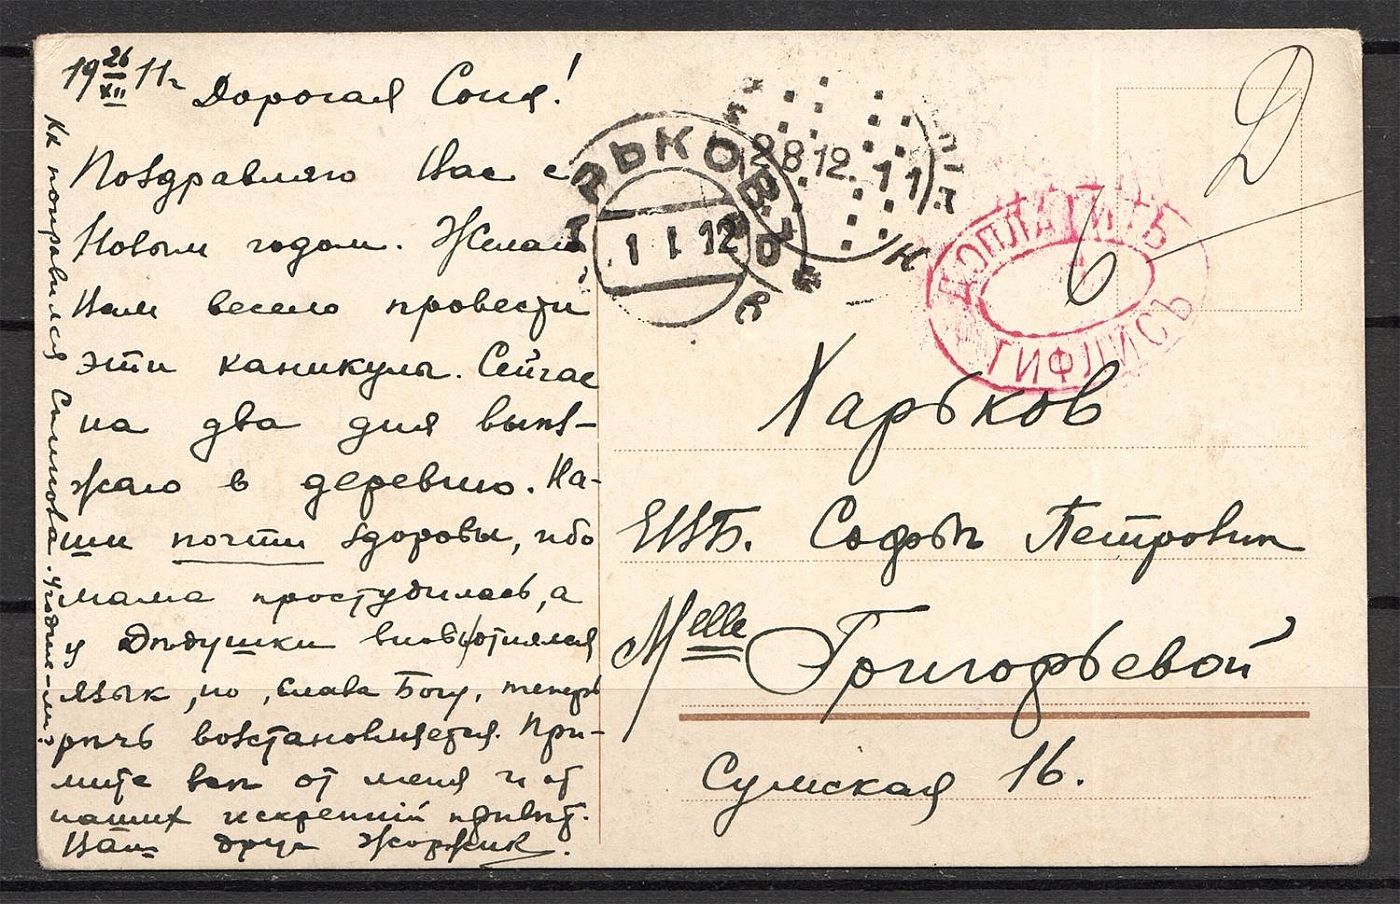 19 26/XII 11 г.
Дорогая Соня!
Поздравляю Вас с
Новым годом. Желаю
Вам весело провести
эти каникулы. Сейчас
на два дня выѣз-
жаю в деревню. На-
ши почти здоровы, ибо
мама простудилась, а
у Дѣдушки вновь отнялся
язык, но, слава Богу, теперь
рѣчь возстановляется. При-
мите всѣ от меня и от
наших искренній привѣт.
Ваш друг Жоржик.
Как поправился
28 12. 11
ХАРЬКОВЪ
1 1 12
ДОПЛАТИТЬ
6
ТИФЛИСЪ
Д
Харьков
ЕВБ. Софьѣ Петровнѣ
Melle Григорьевой
Сумская 16.